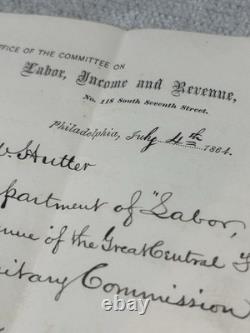 OFFICE OF THE COMMITTEE ON
Labor, Income and Revenue,
No. 118 South Seventh Street.
Philadelphia, July 4th 1864.
Hutter
partment of "Labor,
nue of the Great Central F
nitary Commission